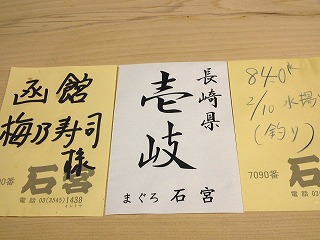 函館
梅乃寿司
様
090番
石宮
電話 03(3545)1438
長崎県
壱岐
まぐろ 石宮
84.0K
2/10 水揚
(釣り)
7090番
石
電話 03(